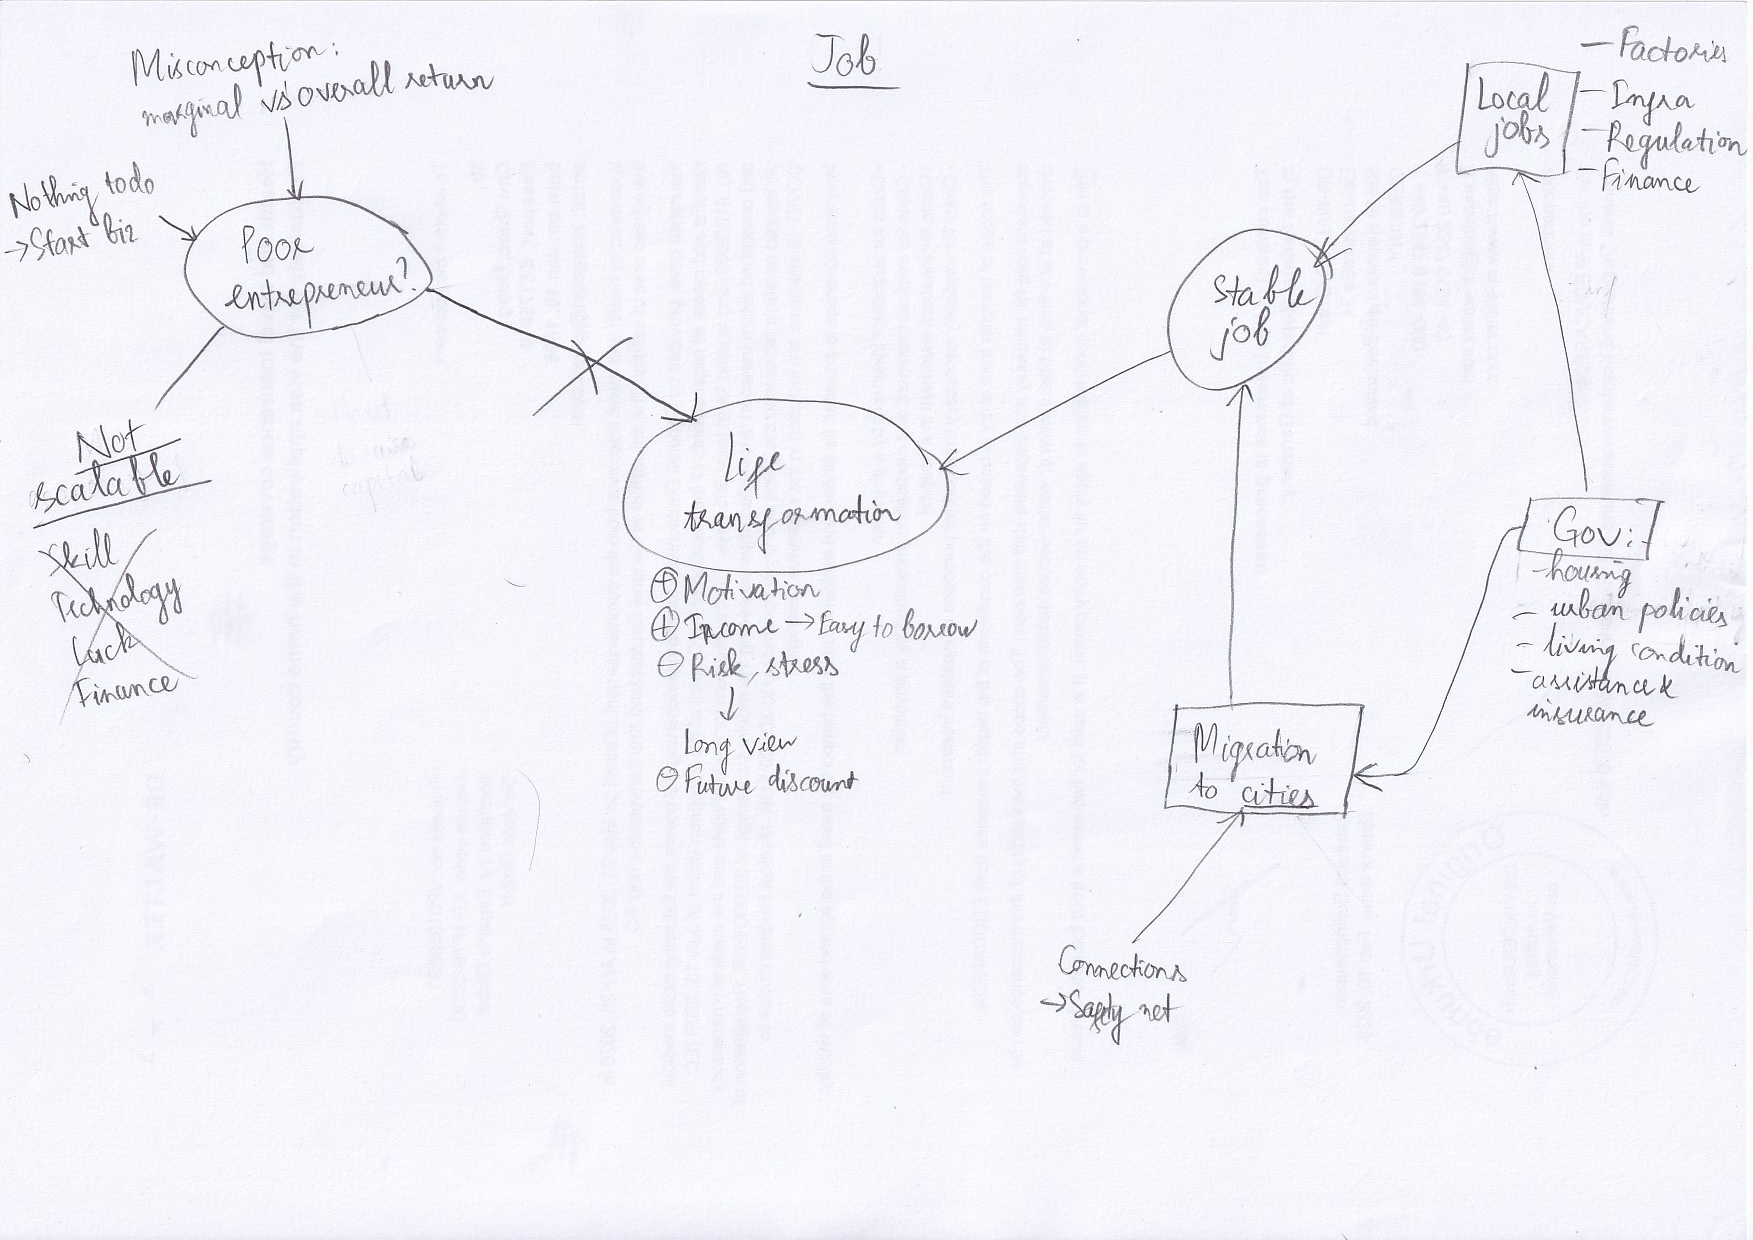 Job
Misconception:
marginal vs overall return
Nothing to do
→ Start biz
Poor
entrepreneur?
Not
scalable
Skill
Technology
Luck
Finance
Life
transformation
⊕ Motivation
⊕ Income → Easy to borrow
⊖ Risk, stress
↓
Long view
⊖ Future discount
Stable
job
Local
jobs
- Factories
- Infra
- Regulation
- Finance
Gov:
- housing
- urban policies
- living condition
- assistance &
insurance
Migration
to cities
Connections
→ Safety net